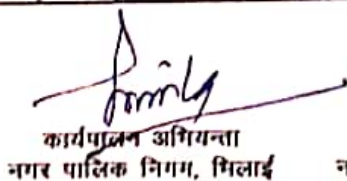 कार्यपालन अभियन्ता
नगर पालिक निगम, भिलाई न